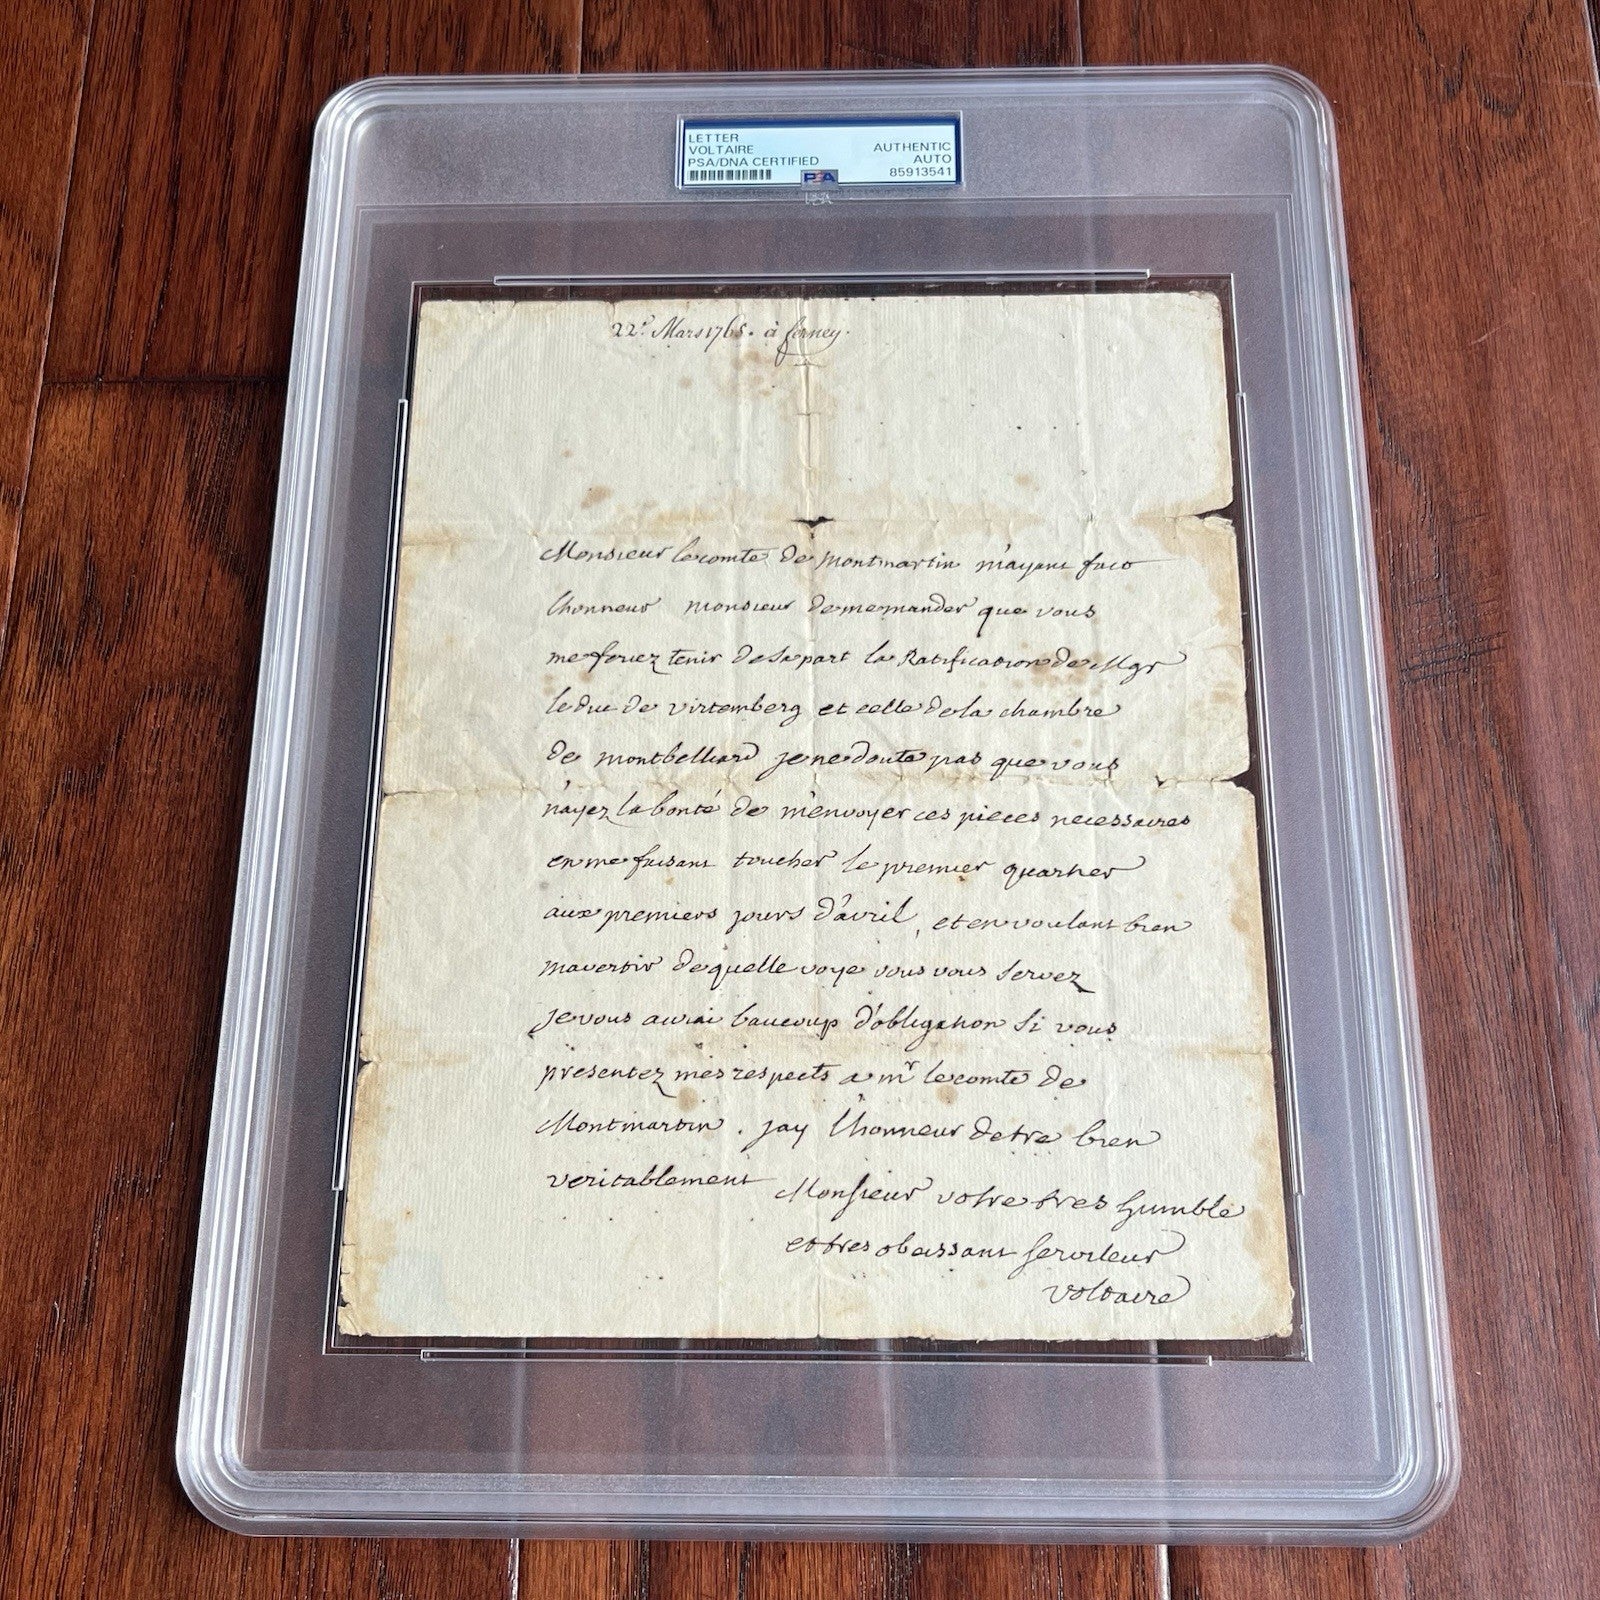 LETTER
VOLTAIRE
PSA/DNA CERTIFIED
AUTHENTIC
AUTO
85913541
PSA
22e Mars 1765. à ferney.
Monsieur le comte de montmartin m'ayant fait
lhonneur monsieur de me mander que vous
me feriez tenir de sa part la Ratification de Mgr
le duc de virtemberg et celle de la chambre
de montbelliard je ne doute pas que vous
n'ayez la bonté de m'envoyer ces pieces necessaires
en me faisant toucher le premier quartier
aux premiers jours d'avril, et en voulant bien
mavertir de quelle voye vous vous servez
je vous aurai baucoup d'obligation si vous
presentez mes respects a mr le comte de
Montmartin. jay l'honneur detre bien
veritablement Monsieur votre tres humble
et tres obeissant serviteur
voltaire